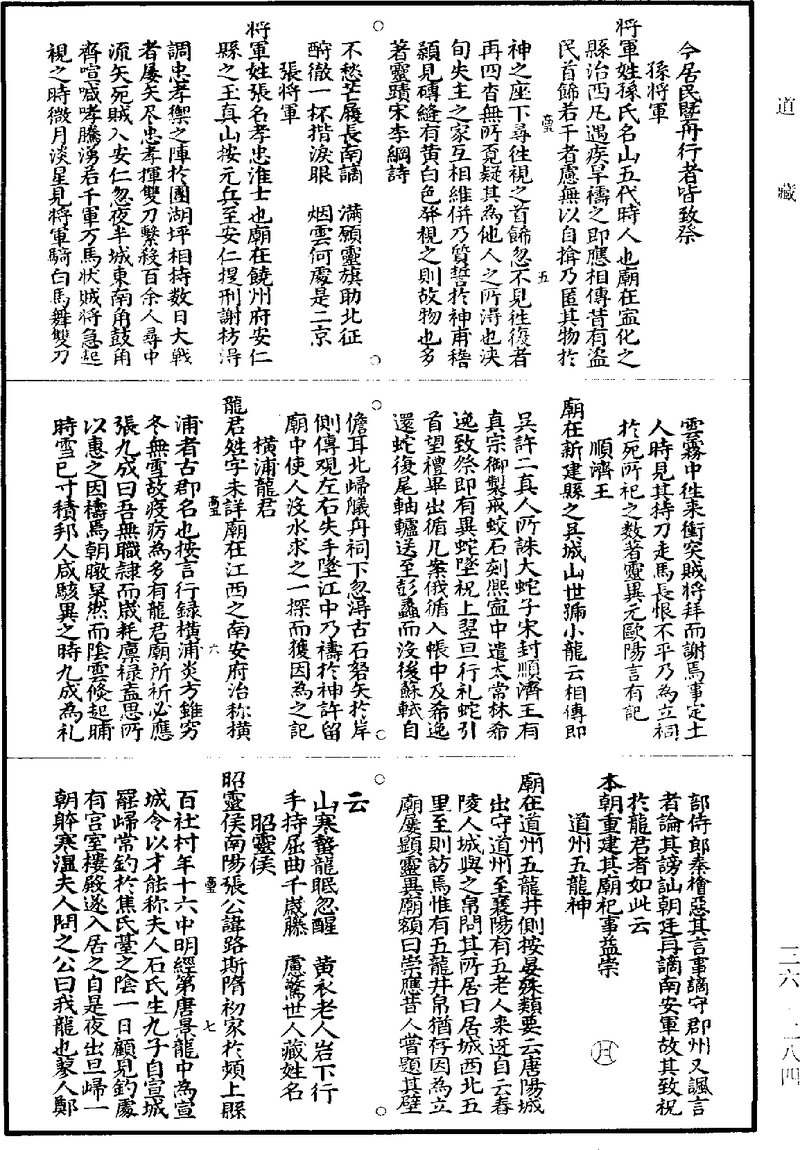 道藏
今居民暨舟行者皆致祭
孫將軍
將軍姓孫氏名山五代時人也廟在宣化之
縣治西凡遇疾旱禱之即應相傳昔有盜
民首飾若干者慮無以自揜乃匿其物於
神之座下尋往視之首飾忽不見徃復者
再四杳無所覓疑其為他人之所得也浹
旬失主之家互相維併乃質誓於神甫稽
顙見磚縫有黄白色發視之則故物也多
著靈蹟宋李綱詩
不愁芒屩長南謫　滿願靈旗助北征
酹徹一杯揩淚眼　烟雲何處是二京
張將軍
將軍姓張名孝忠淮士也廟在饒州府安仁
縣之玉真山按元兵至安仁提刑謝枋得
調忠孝禦之陣於團湖坪相持数日大戰
者屢矢尽忠孝揮雙刀擊殺百余人尋中
流矢死賊入安仁忽夜半城東南角鼓角
齊喧喊哮騰湧若千軍万馬狀賊将急起
視之時微月淡星見將軍騎白馬舞雙刀
雲霧中徃来衝突賊将拜而謝焉事定土
人時見其持刀走馬長恨不平乃為立祠
於死所祀之数著靈異元歐陽言有記
順濟王
廟在新建縣之吴城山世號小龍云相傳即
吴許二真人所誅大蛇子宋封順濟王有
真宗御製戒蛟石刻熙寧中遣太常林希
逸致祭即有異蛇墜祝上翌旦行礼蛇引
首望禮畢出循几案俄循入帳中及希逸
還蛇復尾軸轤送至彭蠡而没後蘇軾自
儋耳北歸艤舟祠下忽得古石砮矢於岸
側傳观左右失手墜江中乃禱於神許留
廟中使人没水求之一探而獲因為之記
横浦龍君
龍君姓字未詳廟在江西之南安府治称横
浦者古郡名也按言行録横浦炎方雖穷
冬無雪故疫疠為多有龍君廟所祈必應
張九成曰吾無職隷而歲耗廪禄盍思所
以惠之因禱焉朝暾杲然而陰雲倐起晡
時雪已寸積邦人咸駭異之時九成為礼
部侍郎秦檜惡其言事謫守郡州又諷言
者論其謗訕朝廷再謫南安軍故其致祝
於龍君者如此云
本朝重建其廟祀事益崇
道州五龍神
廟在道州五龍井側按晏殊類要云唐陽城
出守道州至襄陽有五老人来迓自云舂
陵人城與之帛問其所居曰居城西北五
里至則訪焉惟有五龍井帛猶存因為立
廟屢顯靈異廟額曰崇應昔人嘗題其壁
云
山寒蟄龍眠忽醒　黄衣老人岩下行
手持屈曲千歲藤　慮驚世人藏姓名
昭靈侯
昭靈侯南陽張公諱路斯隋初家於頻上縣
百社村年十六中明經第唐景龍中為宣
城令以才能称夫人石氏生九子自宣城
罷歸常釣於焦氏臺之陰一日顧見釣處
有宫室樓殿遂入居之自是夜出旦歸一
朝躰寒濕夫人問之公曰我龍也蓼人鄭
五
六
七
三六·二八四